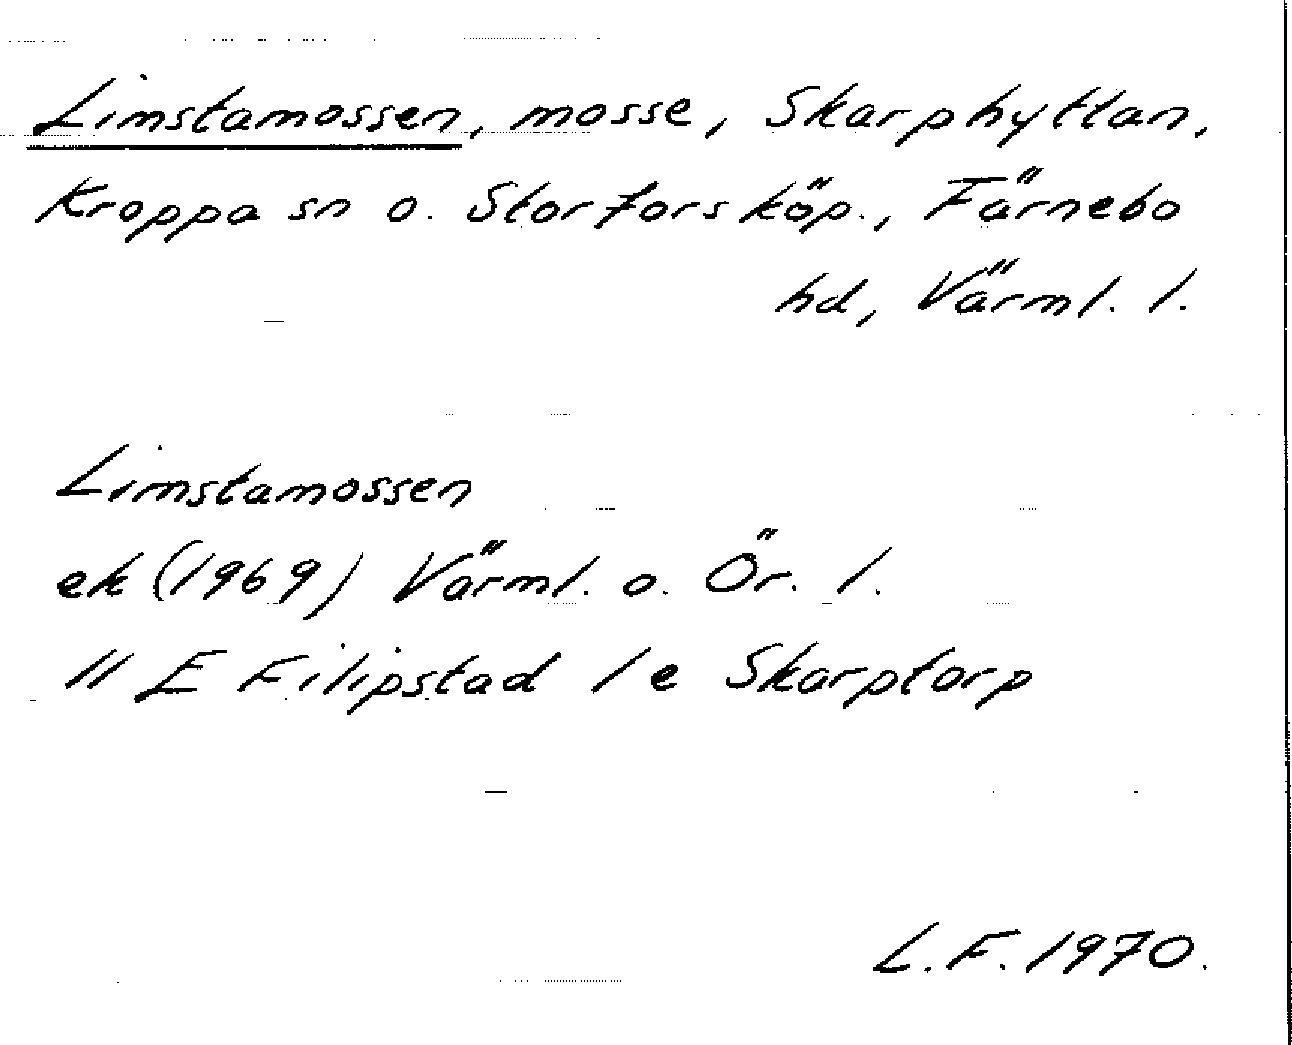 Limstamossen, mosse, Skarphyttan,
Kroppa sn o. Storfors köp., Färnebo
hd, Värml. l.
Limstamossen
ek (1969) Värml. o. Ör. l.
11 E Filipstad 1 e Skarptorp
L.F. 1970.